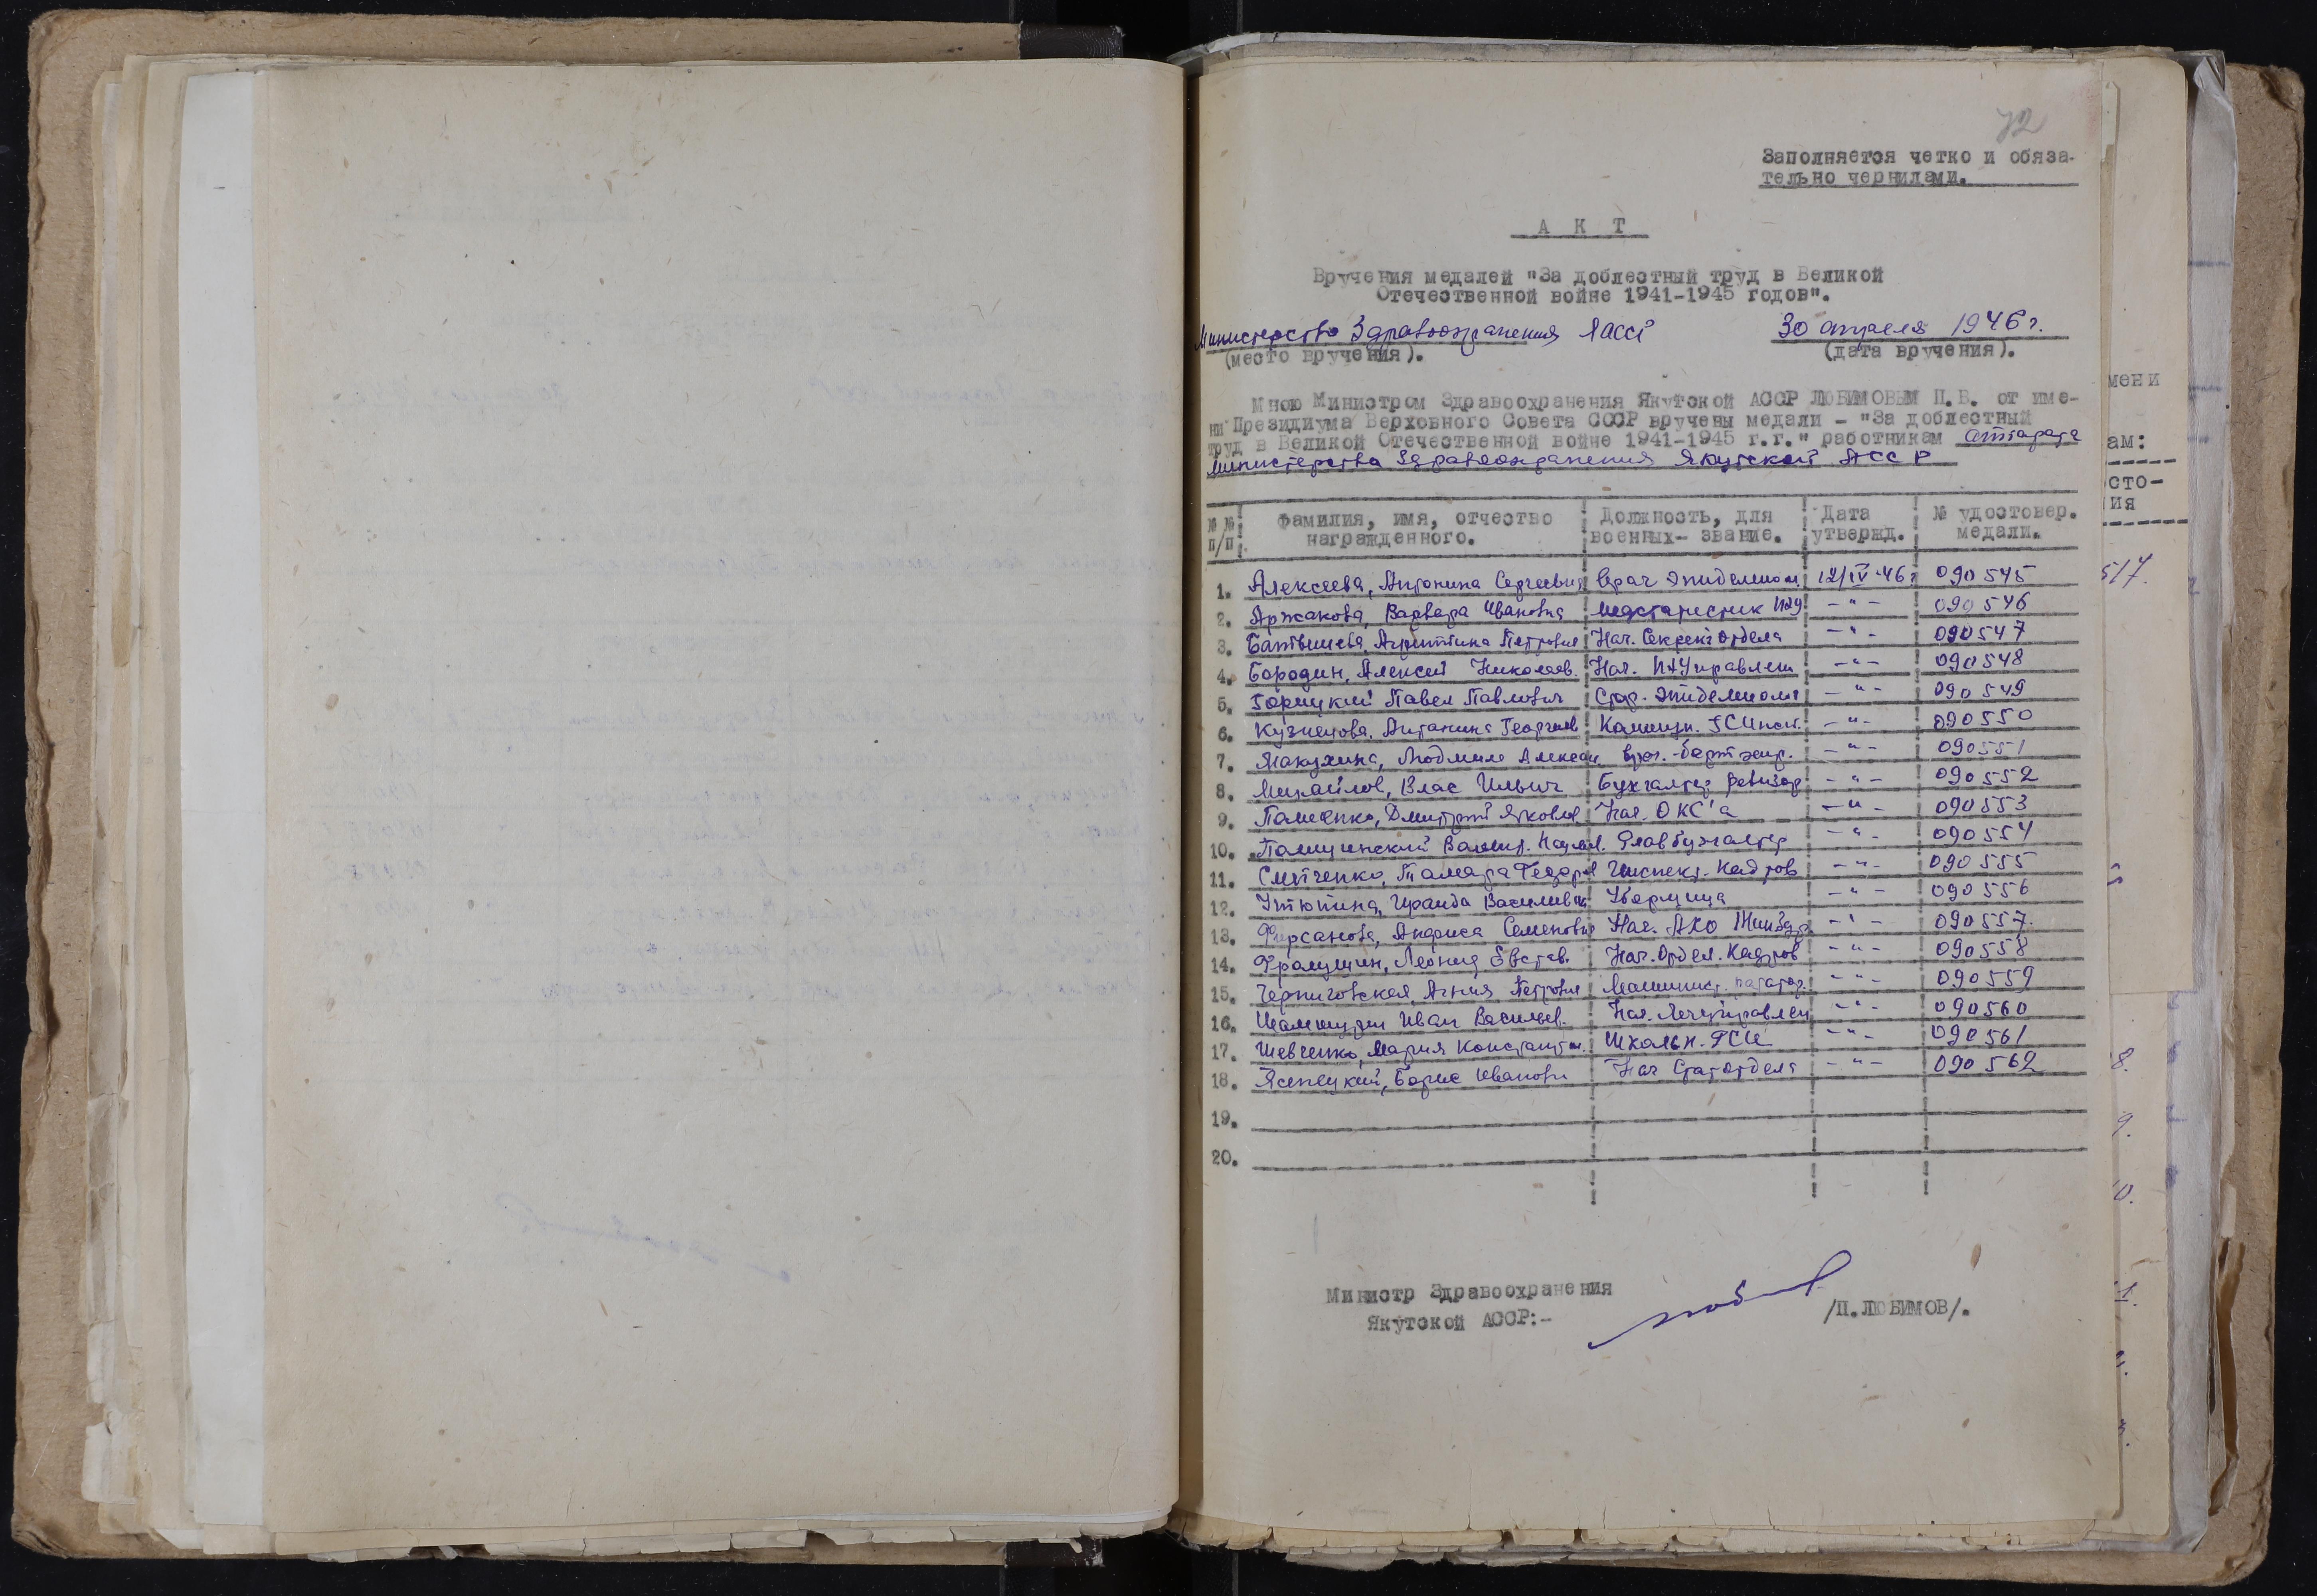 72
Заполняется четко и обяза-
тельно чернилами.
А К Т
Вручения медалей "За доблестный труд в Великой
Отечественной войне 1941-1945 годов".
Министерство Здравоохранения ЯАССР 30 апреля 1946 г.
(место вручения). (дата вручения).
Мною Министром Здравоохранения Якутской АССР ЛЮБИМОВЫМ П.В. от име-
ни Президиума Верховного Совета СССР вручены медали - "За доблестный
труд в Великой Отечественной войне 1941-1945 г.г." работникам аппарата
Министерства Здравоохранения Якутской АССР
№ № Фамилия, имя, отчество Должность, для Дата № удостовер.
п/п награжденного. военных- звание. утвержд. медали.
1. Алексеева, Антонина Сергеевна Врач эпидемиол. 12/IV-46г 090545
2. Аржакова, Варвара Ивановна медстатистик -"- 090546
3. Петровна Нач. Секрет отдела -"- 090547
4. Бородин, Алексей Николаев. Нач. -"- 090548
5. Горицкий Павел Павлович Стар. эпидемиол -"- 090549
6. Кузнецова, Антонина Георгиев -"- 090550
7. Макухина, Людмила Алексан. -"- 090551
8. Михайлов, Влас Ильич Бухгалтер ревизор -"- 090552
9. Дмитрий Яковлев Нач. ОКС'а -"- 090553
10. Глав бухгалтер -"- 090554
11. Тамара Федоров Инспект. Кадров -"- 090555
12. Утюпина, Ираида Васильевн Уборщица -"- 090556
13. Фирсанова, Анфиса Семеновна Нач. АХО -"- 090557.
14. Леонид Евстав. Нач. Отдел. Кадров -"- 090558
15. Черниговская, Агния Петровна Машинист. -"- 090559
16. Иван Васильев. Нач. Лечуправлен -"- 090560
17. Шевченко, Мария Константин. Школьн. ГСИ -"- 090561
18. Ясенецкий, Борис Иванович Нач Статотдела -"- 090562
19.
20.
Министр Здравоохранения
Якутской АССР:- /П.ЛЮБИМОВ/.
мени
ам:
сто-
ия
517.
8.
9.
0.